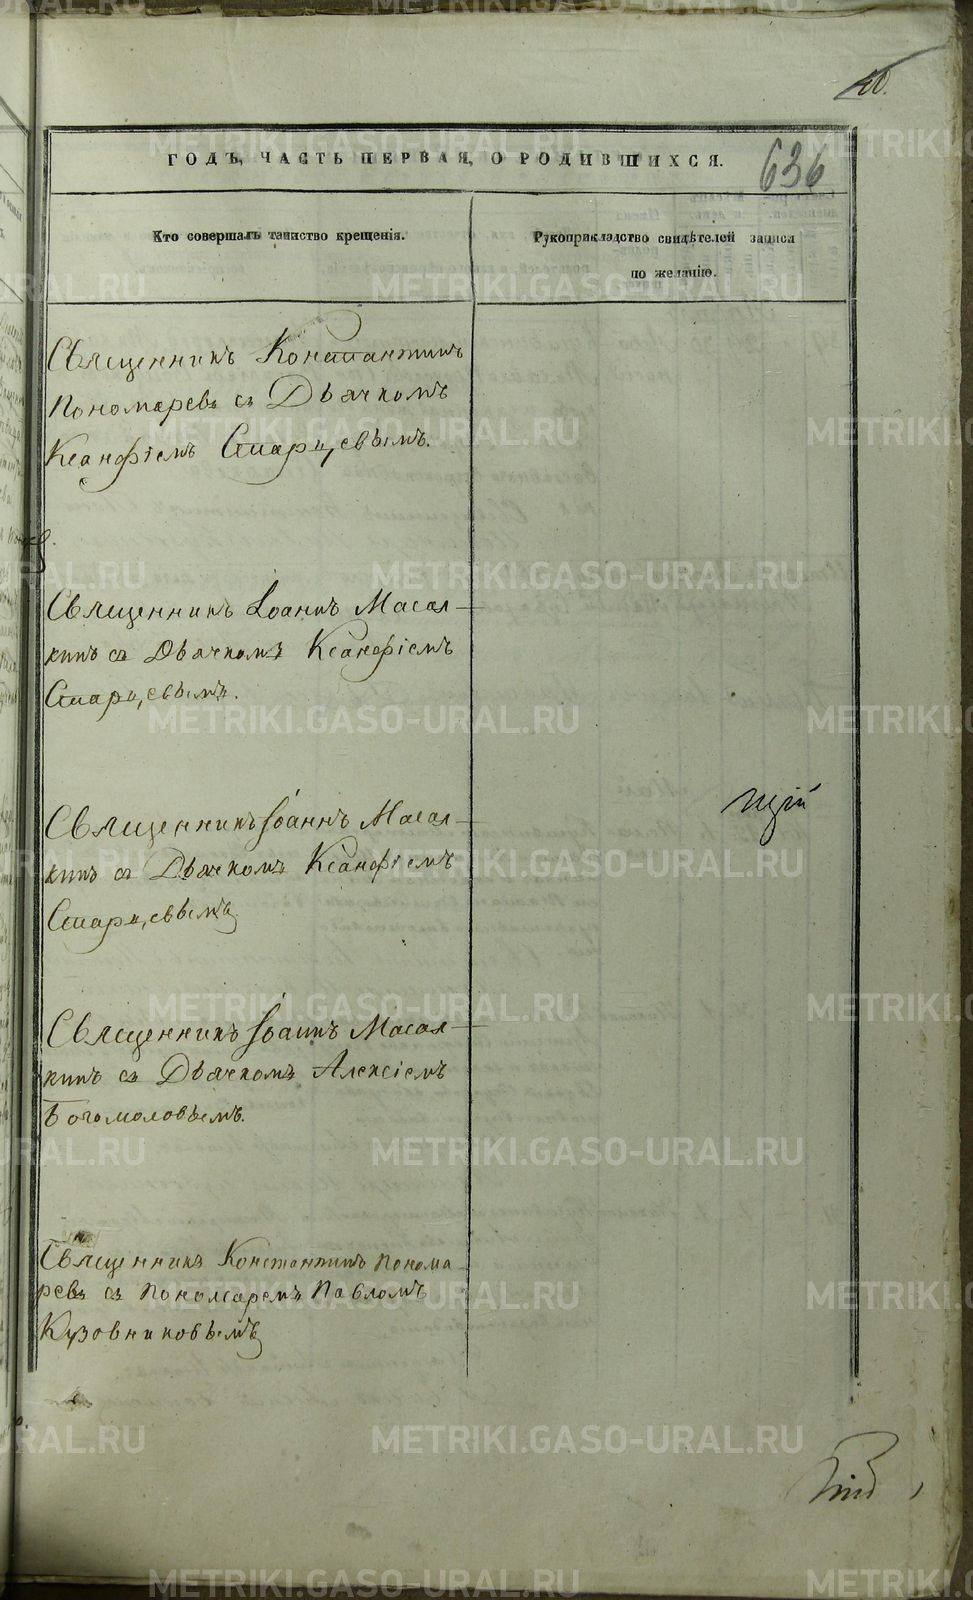 40.
636
ГОДЪ, ЧАСТЬ ПЕРВАЯ, О РОДИВШИХСЯ.
Кто совершалъ таинство крещенія.
Рукоприкладство свидѣтелей записи
по желанію.
Священникъ Константинъ
Пономаревъ съ Дьячкомъ
Ксанфіемъ Старцевымъ.
Священникъ Іоаннъ Масал-
кинъ съ Дьячкомъ Ксанфіемъ
Старцевымъ.
Священникъ Іоаннъ Масал-
кинъ съ Дьячкомъ Ксанфіемъ
Старцевымъ
щій
Священникъ Іоаннъ Масал-
кинъ съ Дьячкомъ Алексіемъ
Богомоловымъ.
Священникъ Константинъ Понома-
ревъ съ Пономаремъ Павломъ
Кузовниковымъ
METRIKI.GASO-URAL.RU